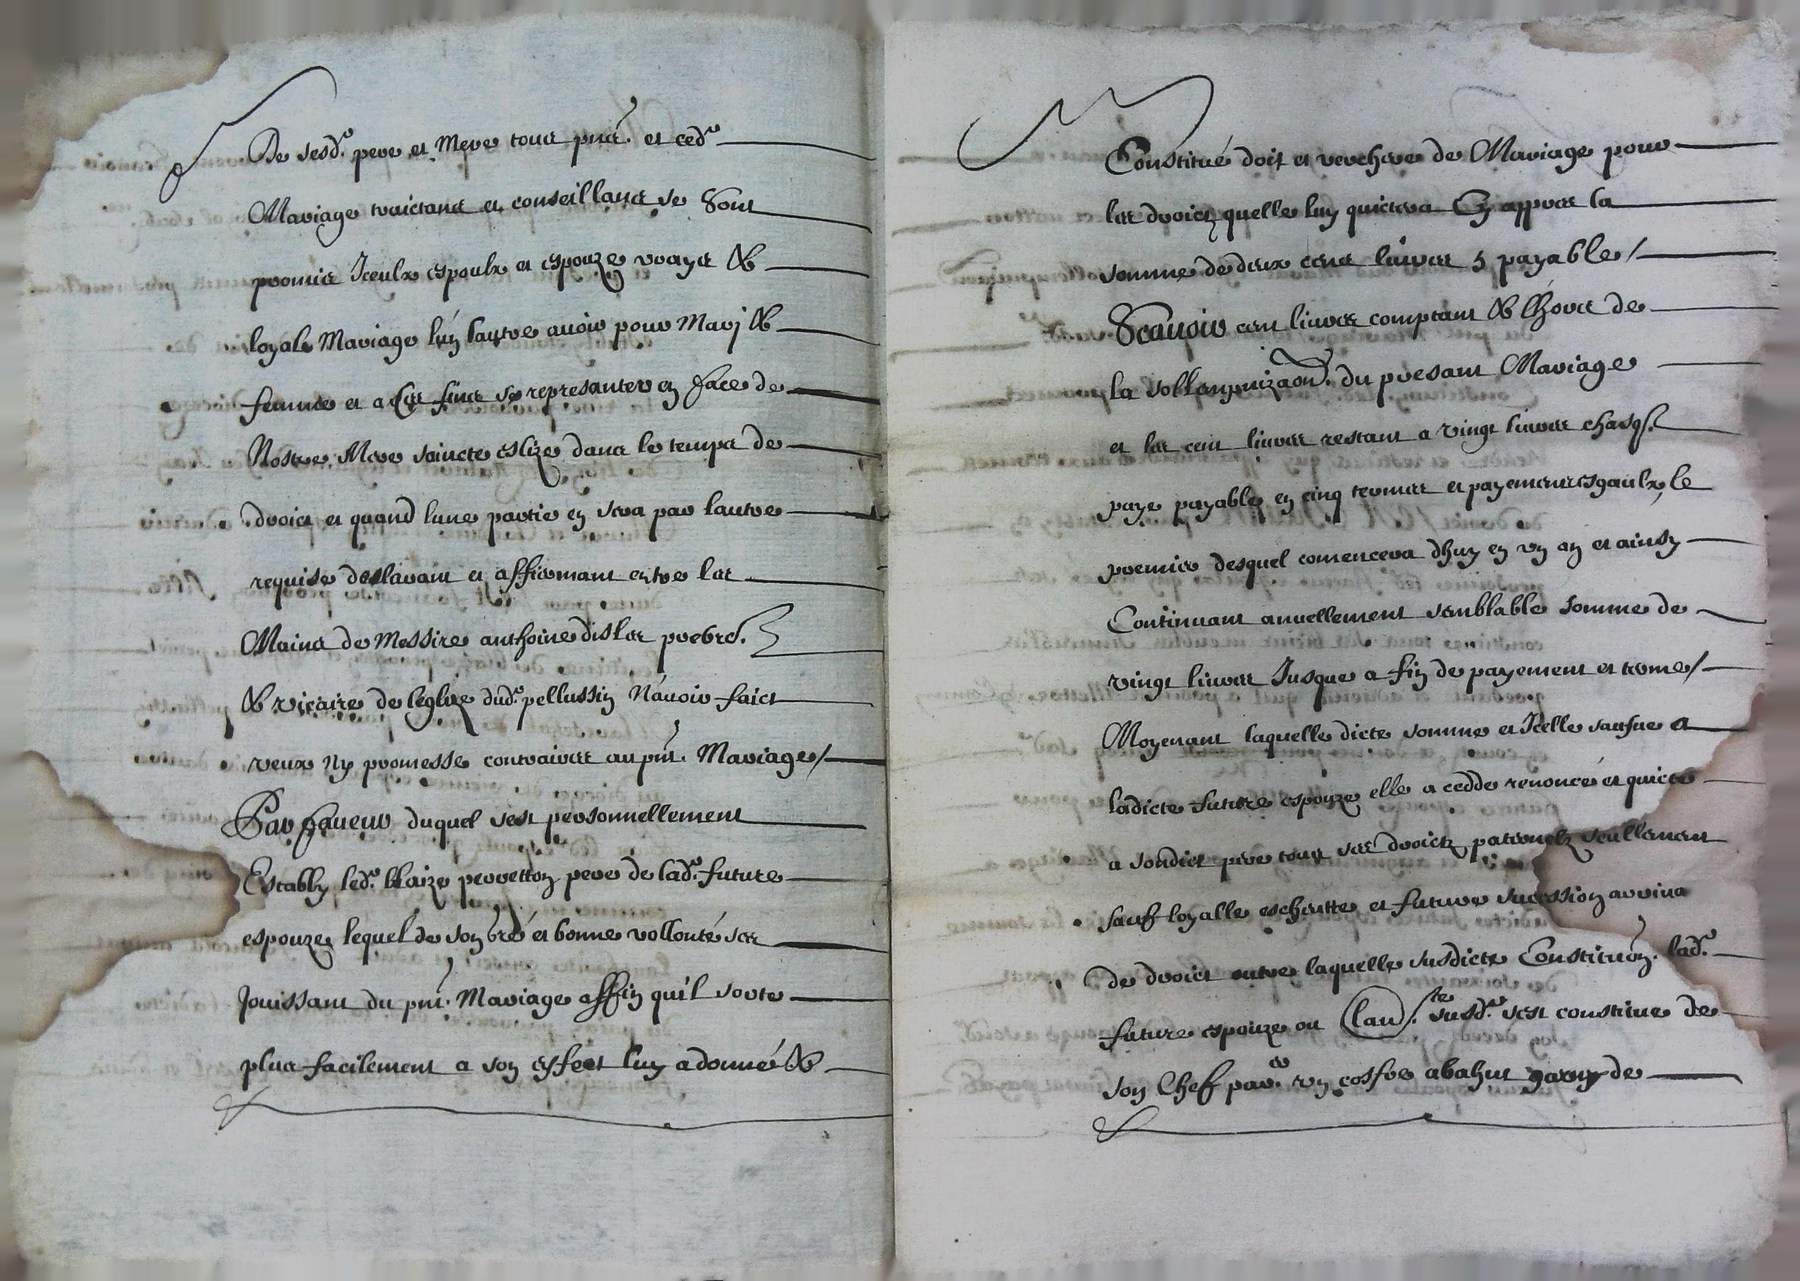 De sesd. pere et Mere tous pns. et ced.
Mariage traictans et conseillans se sont
promis Iceulx espoulx et espouze vraye &
loyale Mariage lun lautre avoir pour Mari &
femme et a ces fins se representer en face de
Nostre Mere saincte esglize dans le temps de
droict et quand lune partie en sera par lautre
requise deslarant et affirmant entre les
Mains de Messire anthoine prebre.
& vicaire de leglize dud. pellussin Navoir faict
veux Ny promesse contraires au pnt. Mariage/
Par faveur duquel sest personnellement
Estably led. blaize perretton pere de lad. future
espouze lequel de son gré et bonne vollonté ses
Jouissant du pnt. Mariage affin quil sorte
plus facilement a son effect luy a donné &
Constitué doit et verchere de Mariage pour
les droictz quelle luy quictera Cy appres la
somme de deux cens livres payable/
Scavoir cent livres comptant & lhors de
la sollempnizaon. du presant Mariage
et les cent livres restant a vingt livres chasq.
paye payable en cinq termes et payemens esgaulx le
premier desquel comencera dhuy en un an et ainsy
Continuant anuellement semblable somme de
vingt livres Jusque a fin de payement et terme/
Moyenant laquelle dicte somme et Icelle saufue a
ladicte future espouze elle a cedde renoncé et quicte
a sondict pere tous ses droictz paternelz seullement
sauf loyalle escheutte et future sucession advins
de droict outre laquelle susdicte Constituon. lad.
future espouze ou Clau.te susd. sest constitue de
son Chef par. un coffre abahut garny de